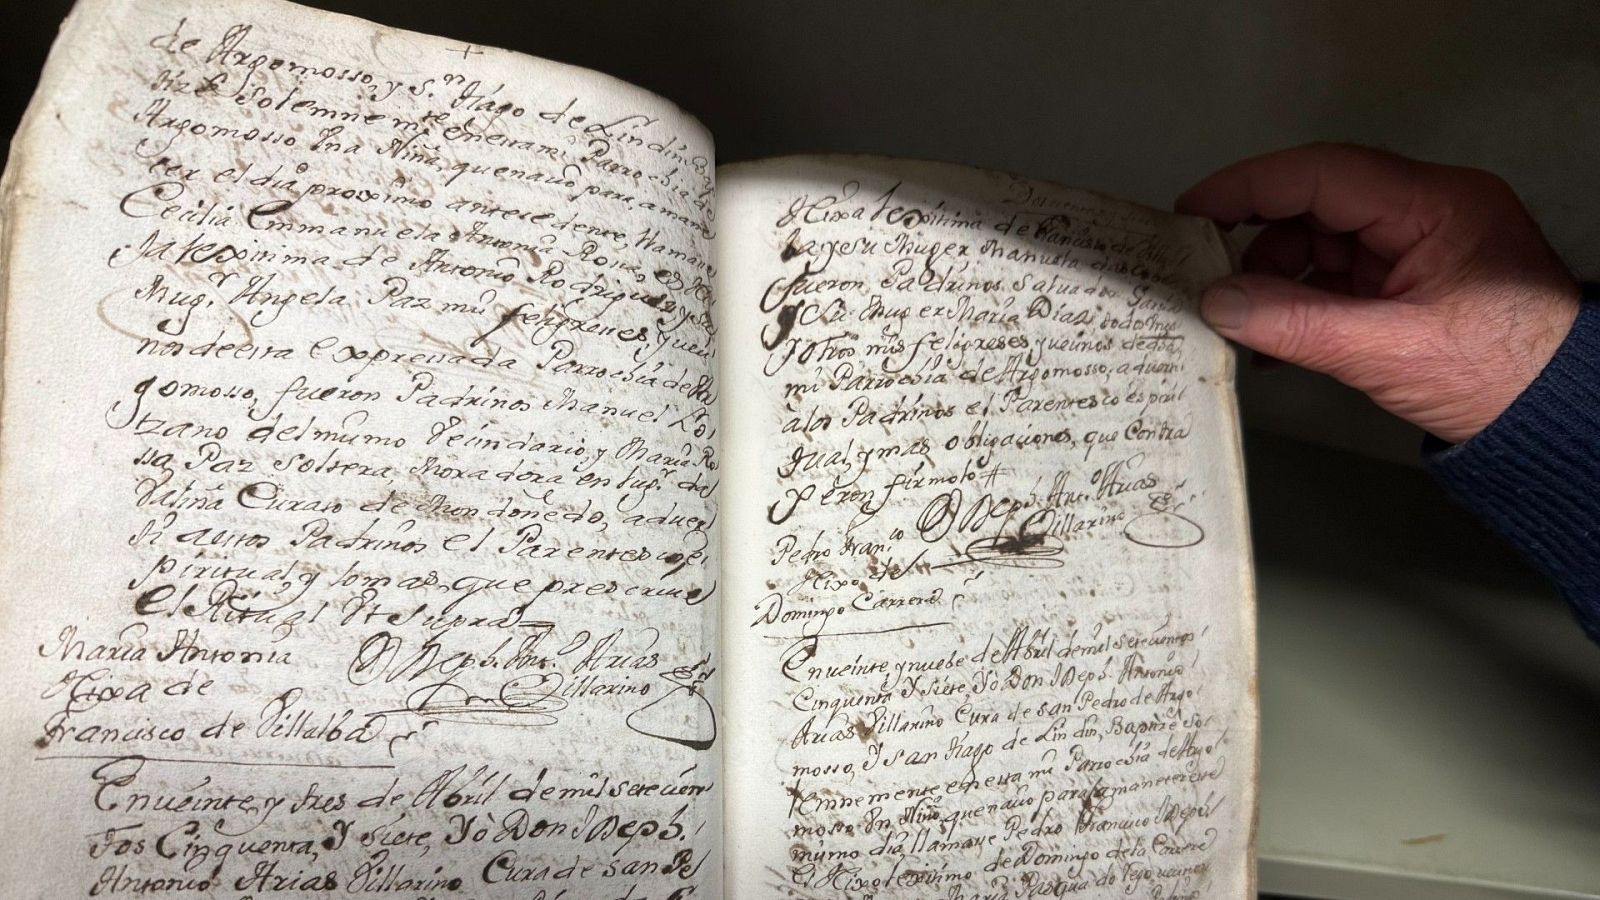 de Argomosso, y S.n Tiago de Lindin, Bap
tizé solemnemte en esta mi Parrochia de
Argomosso Una Niña, que nació para amane
cer el dia proximo antecedente, llamase
Cecilia Emmanuela Antonia Rosa, es Hi
ja lexitima de Antonio Rodriguez, y su
Mug.r Angela Paz mis feligreses, y veci
nos de esta expressada Parrochia de Ar
gomosso, fueron Padrinos Manuel Lo
zano del mismo Vecindario, y Maria Ro
sa Paz Soltera, Moradora en
Curato de Mondoñedo, adver
ti a estos Padrinos el Parentesco es
piritual, y lo mas, que prescrive
el Ritual Ut Supra
Maria Antonia
Hixa de
Francisco de Villalba
D Joseph Ant.o Arias
Villarino
En veinte, y tres de Abril de mil setecien
tos Cinquenta, Y siete, Yò Don Joseph
Antonio Arias Villarino Cura de San Pe
Hixa lexitima de Francisco de
y su Muger Manuela
fueron Padrinos Salvador
y Su Muger Maria Diaz, todos
y otros mis feligreses y vecinos de esta
mi Parrochia de Argomosso, adverti
à los Padrinos el Parentesco espiri
tual, y mas obligaciones, que Contra
xeron firmolo #
D Joseph Ant.o Arias
Villarino
Pedro Fran.co
Hixo de
Domingo Carrera
En veinte, y nuebe de Abril de mil setecientos
Cinquenta Y siete, Yò Don Joseph Antonio
Arias Villarino Cura de San Pedro de Argo
mosso, Y San Tiago de Lindin, Baptizé So
lemnemente en esta mi Parrochia de Argo
mosso Un Niño, que naciò para amanecer este
mismo dia, llamase Pedro Francisco Joseph
es Hixo lexitimo de Domingo de la Carrera
Maria Pasqua